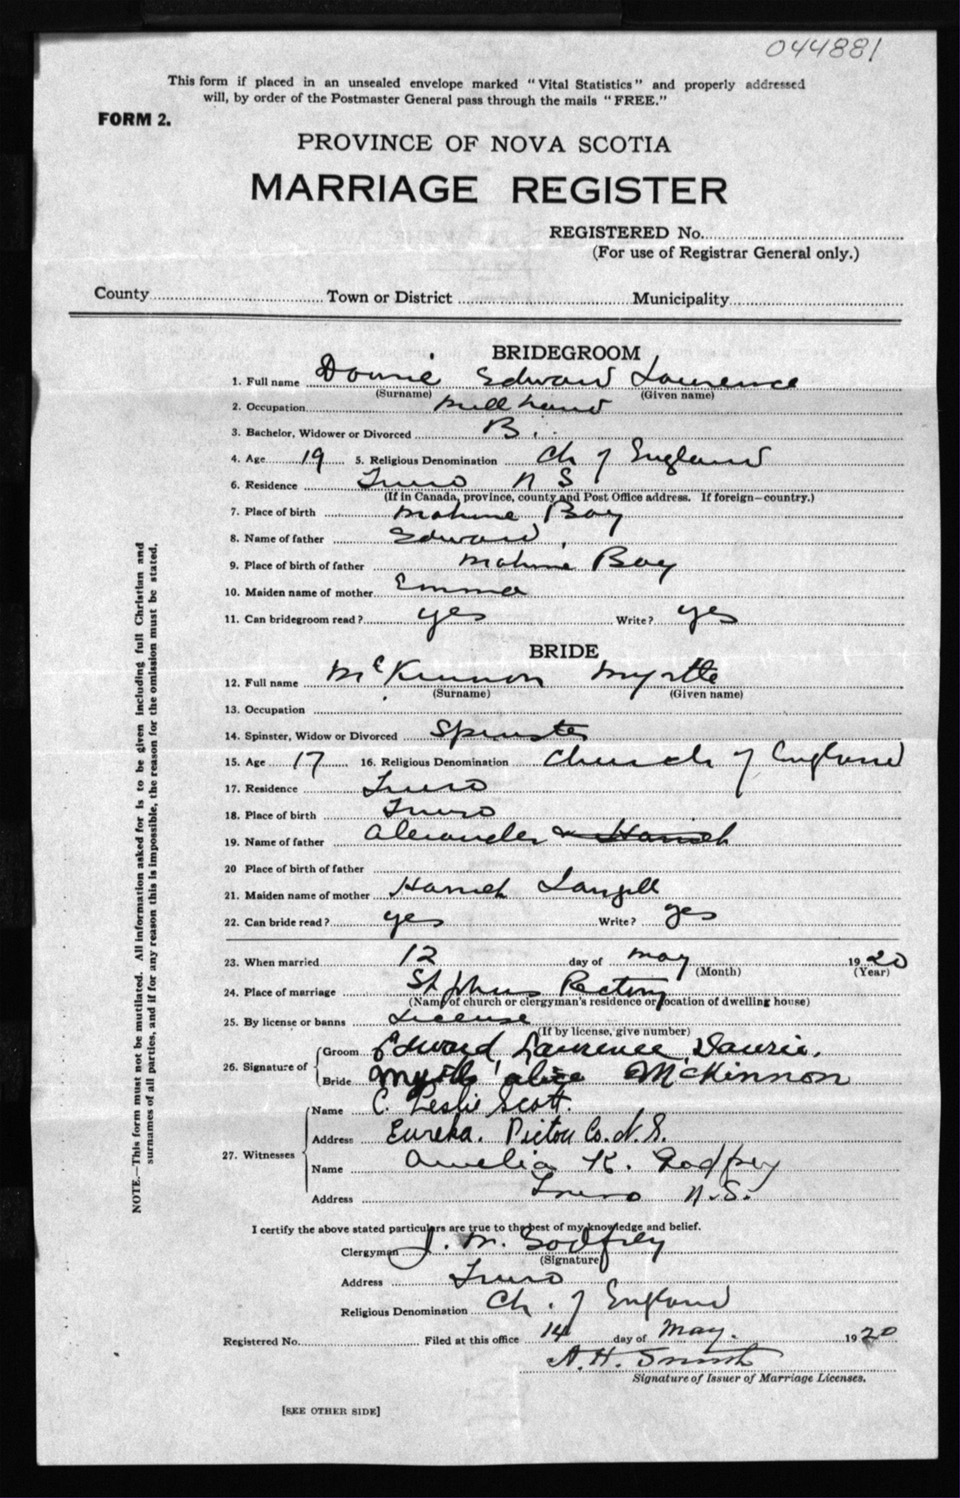 044881
This form if placed in an unsealed envelope marked "Vital Statistics" and properly addressed
will, by order of the Postmaster General pass through the mails "FREE."
FORM 2.
PROVINCE OF NOVA SCOTIA
MARRIAGE REGISTER
REGISTERED No.
(For use of Registrar General only.)
County Town or District Municipality
BRIDEGROOM
1. Full name Edward Laurence
(Surname) (Given name)
2. Occupation mill hand
3. Bachelor, Widower or Divorced B.
4. Age 19 5. Religious Denomination Ch of England
6. Residence Truro N S
(If in Canada, province, county and Post Office address. If foreign—country.)
7. Place of birth Mahone Bay
8. Name of father Edward
9. Place of birth of father Mahone Bay
10. Maiden name of mother Emma
11. Can bridegroom read? yes Write? yes
BRIDE
12. Full name McKinnon Myrtle
(Surname) (Given name)
13. Occupation
14. Spinster, Widow or Divorced Spinster
15. Age 17 16. Religious Denomination Church of England
17. Residence Truro
18. Place of birth Truro
19. Name of father Alexander
20 Place of birth of father
21. Maiden name of mother Langill
22. Can bride read? yes Write? yes
23. When married 12 day of May 1920
(Month) (Year)
24. Place of marriage Rectory
(Name of church or clergyman's residence or location of dwelling house)
25. By license or banns License
(If by license, give number)
26. Signature of Groom Edward Laurence
Bride Myrtle Alice McKinnon
27. Witnesses Name C. Leslie Scott.
Address Eureka. Pictou Co. N.S.
Name Amelia K. Godfrey
Address Truro N.S.
I certify the above stated particulars are true to the best of my knowledge and belief.
Clergyman J. M. Godfrey
(Signature)
Address Truro
Religious Denomination Ch. of England
Registered No. Filed at this office 14 day of May. 1920
A. H. Smith
Signature of Issuer of Marriage Licenses.
[SEE OTHER SIDE]
NOTE.—This form must not be mutilated. All information asked for is to be given including full Christian and
surnames of all parties, and if for any reason this is impossible, the reason for the omission must be stated.